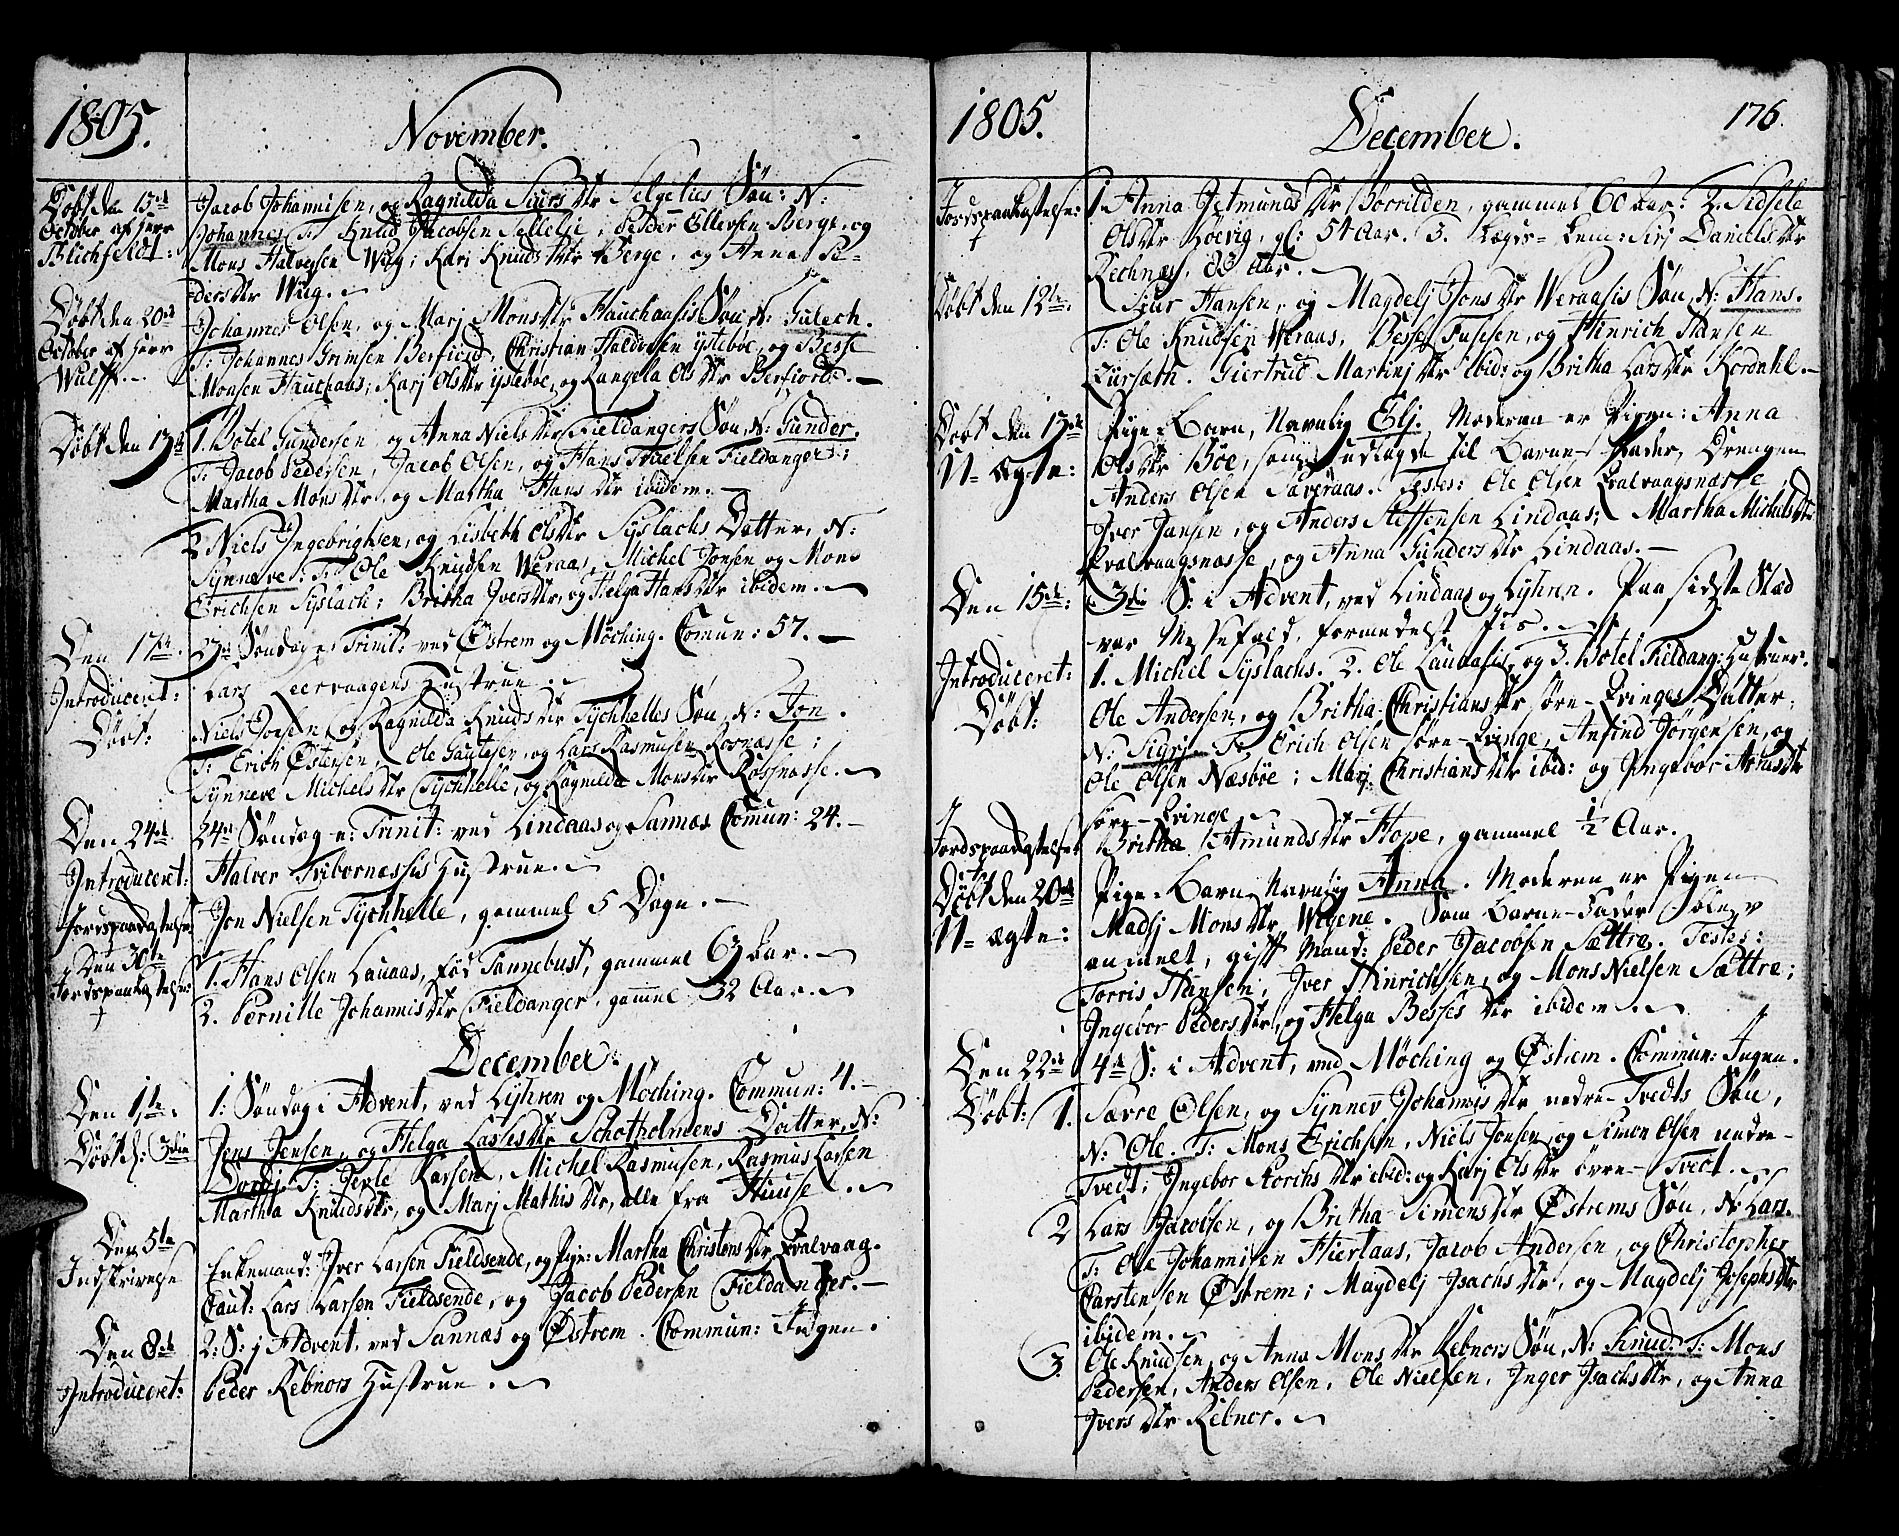 1805.
November.
Døbt den 13de
October af Herr
Blichfeldt.
Jacob Johannisen, og Ragnilda Siursdtr Selgelies Søn: N:
Johannes. T: Knud Jacobsen Sellelie, Peder Ellersen Berge, og
Mons Halversen Wiig; Kari Knudsdtr Berge, og Anna Pe-
dersdtr Wiig.
Døbt den 20de
October af Herr
Wulff.
Johannes Olsen, og Marj Monsdtr Hauchaasis Søn, N: Gulech.
T: Johannes Grimsen Berfiord, Christian Haldorsen ÿsteboe, og Besse
Monsen Hauchaas; Karj Olsdtr ÿsteboe, og Rangela Olsdtr Berfiord.
Døbt den 13de
1. Botel Gundersen, og Anna Nielsdtr Fieldangers Søn, N: Gunder.
T: Jacob Pedersen, Jacob Olsen, og Hans Truelsen Fieldanger;
Martha Monsdtr, og Martha Hansdtr ibidem.
2 Niels Ingebrigtsen, og Lisbeth Olsdtr Syslachs Datter, N:
Synneve: T: Ole Knudsen Weraas, Michel Jonsen og Mons
Erichsen Syslach; Britha Iversdtr, og Helga Hansdtr ibidem.
Den 17de.
23de Søndag e: Trinit: ved Østrem og Møching. Comun: 57.
Introduceret:
Lars Leervaagens Hustrue.
Døbt:
Niels Joesen, og Ragnilda Knudsdtr Tychhelles Søn, N: Jon.
T: Erich Østensen, Ole Gautesen, og Lars Rasmusen Rosnæsse;
Synneve Michelsdtr Tychhelle, og Ragnilda Monsdtr Rossnæsse.
Den 24de.
24de Søndag e: Trinit: ved Lindaas og Sannæs Comun: 24.
Introduceret:
Halver Fribornæssis Hustrue.
Jordspaakastelse
Jon Nielsen Tychhelle, gammel 5 Dage.
Den 30te
Jordspaakastelse:
1. Hans Olsen Lauaas, fød Tannebust, gammel 63 Aar.
2. Pernille Johannisdtr Fieldanger, gammel 32 Aar.
December:
Den 1ste.
1: Søndag i Advent, ved Lyhren og Møching. Commun: 4.
Døbt d: 3die
Jens Jensen, og Helga Lassesdtr Schotholmens Datter, N:
Dordj. T: Jerle Larsen, Michel Rasmusen, Rasmus Larsen
Martha Knudsdtr, og Marj Mathisdtr, alle fra Hiuse.
Den 5te
Indskrivelse
Enkemand: Iver Larsen Fieldsende, og Pige: Martha Christensdtr Qvalvaag.
Caut: Lars Larsen Fieldsende, og Jacob Pedersen Fieldanger.
Den 8de
2: S: j Advent, ved Sannæs og Østrem. Commun: Ingen.
Introduceret:
Peder Rebnors Hustrue.
1805.
December.
176.
Jordspaakastelse:
1. Anna Jetmundsdtr Børrilden, gammel 60 Aar: 2. Sidsele
Olsdtr Høevig, gl: 54 Aar. 3. Lægds-Lem: Siri Danielsdtr
Rechnæss, 83 Aar.
Døbt den 12te.
Siur Hansen, og Magdelj Jonsdtr Weraasis Søn, N: Hans.
T: Ole Knudsen Weraas, Besse Fusesen, og Hinrich Hansen
Lursætn. Giertrud Martinjdtr ibid: og Britha Larsdtr Kordahl.
Døbt den 13de
U-ægte:
Pige-Barn, Navnlig Elj. Moderen er Pigen: Anna
Olsdtr Bøe, som udlagde til Barne-Fader, Drengen
Anders Olsen Saveraas. Testes: Ole Olsen Qvalvaagsnæsse,
Iver Jansen, og Anders Steffensen Lindaas; Martha Michelsdtr
Qvalvaagsnæsse, og Anna Gundersdtr Lindaas.
Den 15de:
3die S: i Advent, ved Lindaas og Lyhren. Paa sidste Stæd
var Messefald, formedelst Jis.
Introduceret:
1. Michel Syslachs. 2. Ole Lauaasis, og 3. Botel Fieldang: Hustruer.
Døbt:
Ole Andersen, og Britha Christiansdtr søre-Qvinges Datter,
N: Sigrj. T: Erich Olsen søre-Qvinge, Anfind Jørgensen, og
Ole Olsen Næsbøe; Marj Christiansdtr ibid: og Ingebor Arnesdtr
søre-Qvinge
Jordspaakastelse
Britha Amundsdtr Hope, gammel 1/2 Aar.
Døbt den 20de
U-ægte:
Pige-Barn Navnlig Anna. Moderen er Pigen
Madlj Monsdtr Wegene. Som Barne-Fader blev
anmelt, gift Mand: Peder Jacobsen Sættre. Testes:
Torris Hansen, Iver Hinrichsen, og Mons Nielsen Sættre;
Ingebor Pedersdtr, og Helga Bessesdtr ibidem.
Den 22de
4de S: i Advent, ved Møching og Østrem. Commun: Ingen.
Døbt: 1.
Sævre Olsen, og Synnev Johannisdtr nedre-Tvedts Søn,
N: Ole. T: Mons Erichsen, Niels Jonsen, og Simon Olsen nedre-
Tvedt, Ingebor Aorichsdtr ibid: og Karj Olsdtr øvre-Tvedt.
2 Lars Jacobsen, og Britha Simensdtr Østrems Søn, N: Lars.
T: Ole Johannisen Hiertaas, Jacob Andersen, og Christopher
Carstensen Østrem; Magdelj Isachsdtr, og Magdelj Josephsdtr
ibidem.
3. Ole Knudsen, og Anna Monsdtr Rebnors Søn, N: Knud: T: Mons
Pedersen, Anders Olsen, Ole Nielsen, Inger Isachsdtr, og Anna
Iversdtr Rebnor.